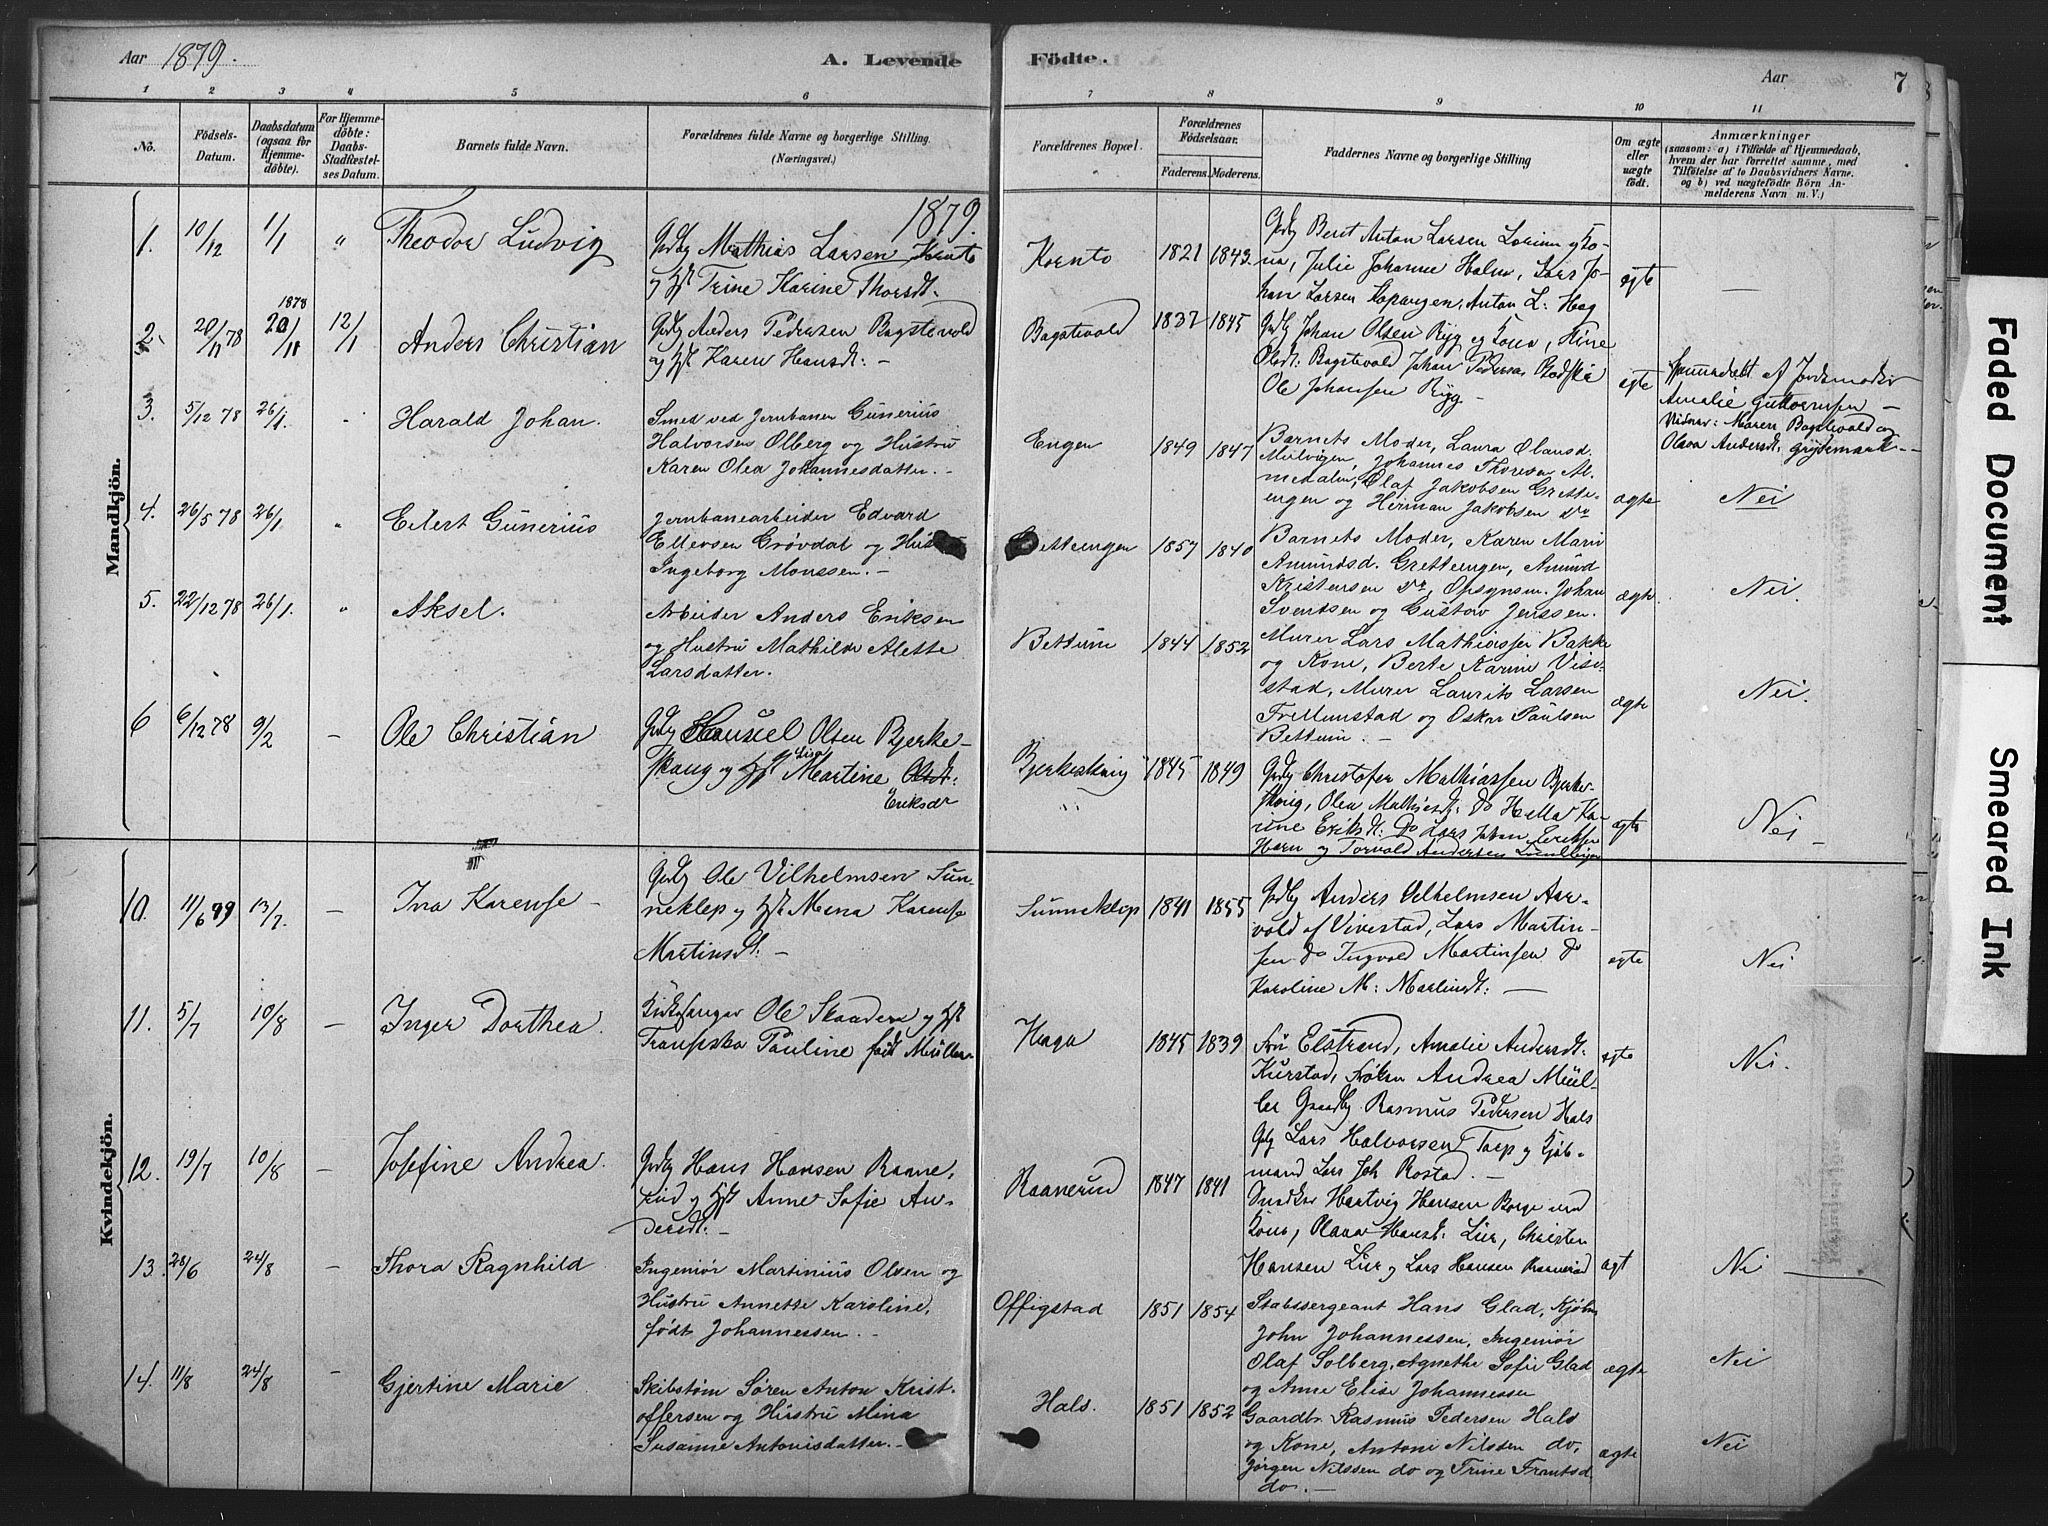 Aar 1879.
A. Levende Födte.
Aar
7
1 2 3 4 5 6 7 8 9 10 11
No.
Födsels-Datum.
Daabsdatum (ogsaa for Hjemmedöbte).
For Hjemmedöbte: Daabs-Stadfæstelses Datum.
Barnets fulde Navn.
Forældrenes fulde Navne og borgerlige Stilling (Næringsvei).
Forældrenes Bopæl.
Forældrenes Födselsaar.
Faderens.
Moderens.
Faddernes Navne og borgerlige Stilling
Om ægte eller uægte födt.
Anmærkninger
(saasom: a) i Tilfælde af Hjemmedaab, hvem der har forrettet samme, med Tilföielse af to Daabsvidners Navne. og b) ved uægtefödte Börn Anmelderens Navn m. V.)
Mandkjön.
1879.
1. 10/12 1/1 " Theodor Ludvig
Gdbr Mathias Larsen
og Hst Trine Karine Thorsdt.
Kornto 1821 1843.
Berst Anton Larsen
Julie Johanne Holm, Lars Jo-
han Larsen Kopangen, Anton L: Hag
egte —
2. 20/11 78 1878 20/11 12/1 Anders Christian
Gdbr Anders Pedersen Bagstevold
og Hst Karen Hansdt: —
Bagstevold 1837 1845
Gdbr Johan Olsen Ryg og Kona,
Olsdt: Bagstevold Johan Pedersen
Ole Johansen Ryg —
egte
Hjemmedøbt af Jordemoder
Amalie Guttormsen —
Vidner: Maren Bagstevold og
Olava Andersdt. Grydemark —
3. 5/12 78 26/1. " Harald Johan.
Smed ved Jernbanen Gunerius
Halvorsen Olberg og Hustru
Karen Olea Johannesdatter. —
Engen 1849 1847
Barnets Moder, Laura Olausd.
Mulvigen, Johannes Thoresen Al-
medalen, Olaf Jakobsen Grette-
engen og Herman Jakobsen do
ægte Nei
4. 26/5 78 26/1 " Eilert Gunerius
Jernbanearbeider Edvard
Ellevsen Grøvdal og Hust
Ingeborg Monssen. —
Gretteengen 1857 1840
Barnets Moder, Karen Marie
Amundsd. Gretteengen, Amund
Kristensen do, Opsynsm. Johan
Svendsen og Gustav Jenssen.
ægte. Nei.
5. 22/12 78 26/1. " Aksel.
Arbeider Anders Eriksen
og Hustru Mathilde Alette
Larsdatter.
Bettum 1844 1852
Murer Lars Mathissen Bakke
og Kone, Berte Karine Vive-
stad, Murer Laurits Larsen
Frillumstad og Oskar Paulsen
Bettum. —
ægte Nei.
6 6/12 78 9/2 — Ole Christian
Gdbr Olsen Bjerke-
skaug og Hst Lisa Martine Olsdt:
Eriksdr
Bjerkeskaug 1845 1849
Gdbr Christofer Mathiassen Bjerke-
skoug, Olea Mathisdt: do Hella Ka-
rine Eriksdt: do Lars Johan Eriksen
Horn og Torvald Andersen
ægte Nei —
Kvindekjön.
10. 11/6 79 13/7. — Ina Karense —
Gdbr Ole Vilhelmsen Sun-
neklep og Hst Mena Karense
Martinsdt: —
Sunneklep 1841 1855
Gdbr Anders Vilhelmsen Aar-
vold af Vivestad, Lars Martin-
sen do Ingvald Martinsen do
Karoline M: Martinsdt: —
egte Nei
11. 5/7 10/8 — Inger Dorthea.
Kirkesanger Ole Skaaden og Hst
Franziska Pauline født Müller.
Haga 1845 1839
Fru Elstrand, Amalie Andersdt.
Kurstad, Frøken Andrea Mül-
ler Gaardbr Rasmus Pedersen Hals
Gdbr Lars Halvorsen Tarp og Kjøb-
mand Lars Joh Rostad. —
egte Nei.
12. 19/7 10/8 — Josefine Andrea.
Gdbr Hans Hansen Raane-
rud og Hst Anne Sofie An-
dersdt: —
Raanerud 1847 1841
Snedker Hartvig Hansen Borge med
Kone, Olava Hansdt: Lier, Christen
Hansen Lier og Lars Hansen Raanerud
egt Nei
13. 28/6 24/8 — Thora Ragnhild
Ingeniør Martinius Olsen og
Hustru Annette Karoline,
født Johannessen. —
Offigstad 1851 1854
Stabssergeant Hans Glad, Kjøbm
John Johannessen, Ingeniør
Olaf Solberg, Agnethe Sofie Glad
og Anne Elise Johannessen
ægte Nei
14. 11/8 24/8 — Gjertine Marie
Skibstøm Søren Anton Krist-
offersen og Hustru Mina
Susanne Antonisdatter. —
Hals. 1851 1852
Gaardbr. Rasmus Pedersen Hals
og Kone, Antoni Nilssen do,
Jørgen Nilssen do og Trine Frantsd.
do. —
ægte Nei
Faded Document
Smeared Ink